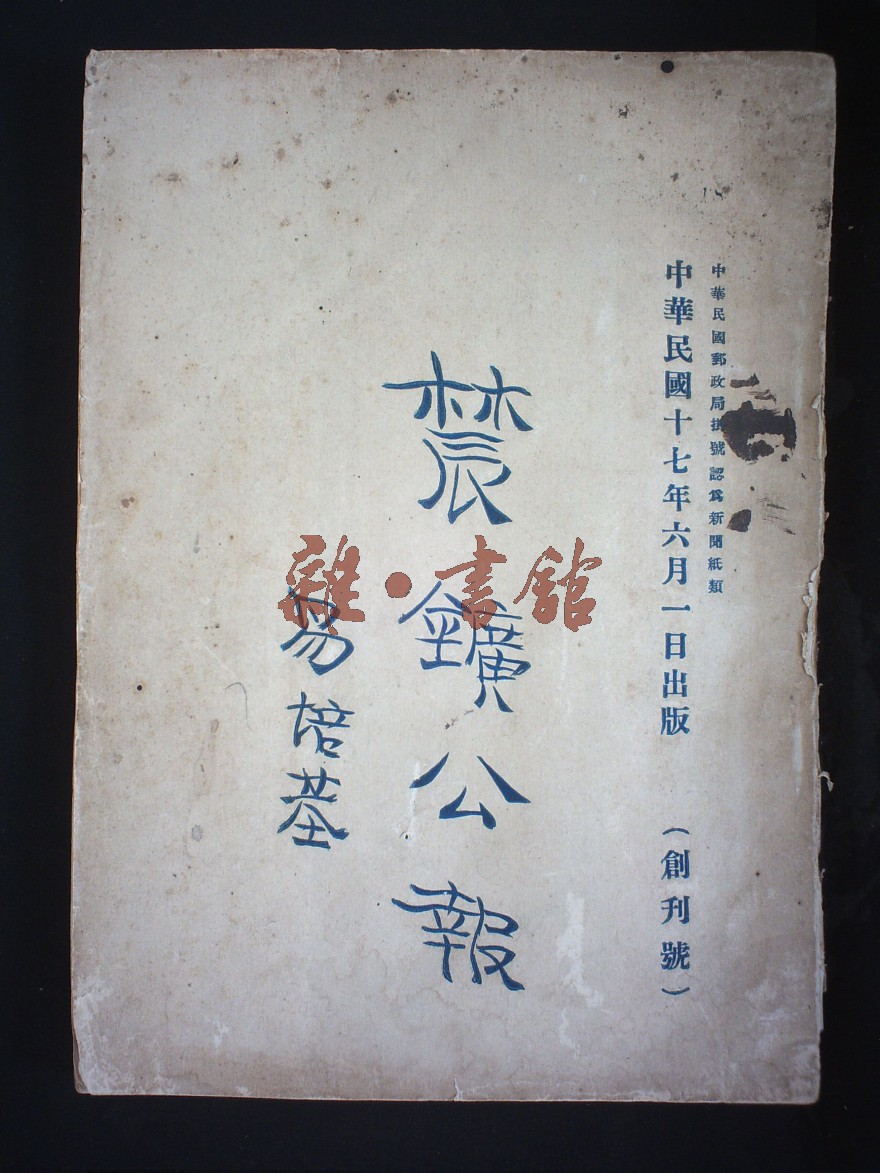 中華民國郵政局掛號認爲新聞紙類
中華民國十七年六月一日出版 (創刊號)
農鑛公報
易培基
雜·書館